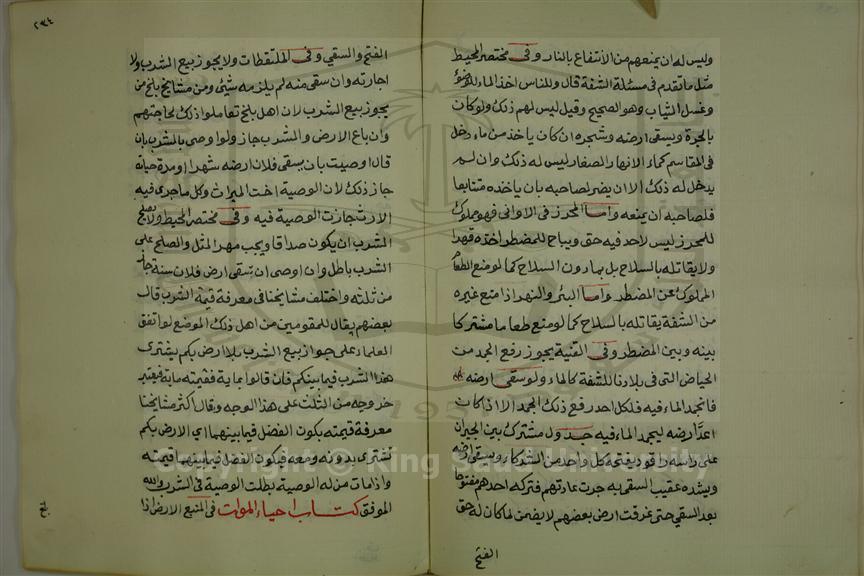 وليس له ان يمنعهم من الانتفاع بالنار وفى مختصر المحيط
مثل ما تقدم فى مسئلة الشفة قال وللناس اخذ الماء للوضوء
وغسل الثياب وهو الصحيح وقيل ليس لهم ذلك ولو كان
بالجرة ويسقى ارضه وشجره ان كان ياخذ من ماء دخل
فى المقاسم كماء الانهار الصغار ليس له ذلك وان لم
يدخل له ذلك الا ان يضر لصاحبه بان ياخذه متتابعا
فلصاحبه ان يمنعه واما المحرز فى الاوانى فهو مملوك
للمحرز ليس لاحد فيه حق ويباح للمضطر اخذه قهرا
ولا يقاتله بالسلاح بل بما دون السلاح كما لو منع الطعام
المملوك عن المضطر واما البئر والنهر اذا منع غيره
من الشفة يقاتله بالسلاح كما لو منع طعاما مشتركا
بينه وبين المضطر وفى القنية يجوز رفع الجمد من
الحياض التى فى بلادنا للشفة كالماء ولو سقى ارضه
فانجمد الماء فيه فلكل احد رفع ذلك الجمد الا اذا كان
اعد ارضه ليجمد الماء فيه جدول مشترك بين الجيران
على راسه راقود يفتحه كل واحد من الشركاء ويسقى ارضه
ويشده عقيب السقى به جرت عادتهم فتركه احدهم مفتوحا
بعد السقي حتى غرقت ارض بعضهم لا يضمن لما كان له حق
الفتح
٢٣٤
الفتح والسقي وفى الملتقطات ولا يجوز بيع الشرب ولا
اجارته وان سقى منه لم يلزمه شئ ومن مشايخ بلخ من
يجوز بيع الشرب لان اهل بلخ تعاملوا ذلك لحاجتهم
وان باع الارض والشرب جاز ولو اوصى بالشرب بان
قال اوصيت بان يسقى فلان ارضه شهرا او مدة حياته
جاز ذلك لان الوصية اخت الميراث وكل ما جرى فيه
الارث جازت الوصية فيه وفى مختصر المحيط ولا يصلح
الشرب ان يكون صداقا ويجب مهر المثل والصلح على
الشرب باطل وان اوصى ان تسقى ارض فلان سنة جاز
من ثلثه واختلف مشايخنا فى معرفة قيمة الشرب قال
بعضهم يقال للمقومين من اهل ذلك الموضع لو اتفق
العلماء على جواز بيع الشرب بلا ارض بكم يشترى
هذا الشرب فيما بينكم فان قالوا بماية فقيمته ماية فيعتبر
خروجه من الثلث على هذا الوجه وقال اكثر مشايخنا
معرفة قيمته يكون الفضل فيما بينهما اي الارض بكم
تشترى بدونه ومعه فيكون الفضل فيما بينهما قيمته
واذا مات من له الوصية بطلت الوصية فى الشرب والله
الموفق كتاب احياء الموات فى المنبع الارض اذا
Copyright © King Saud University